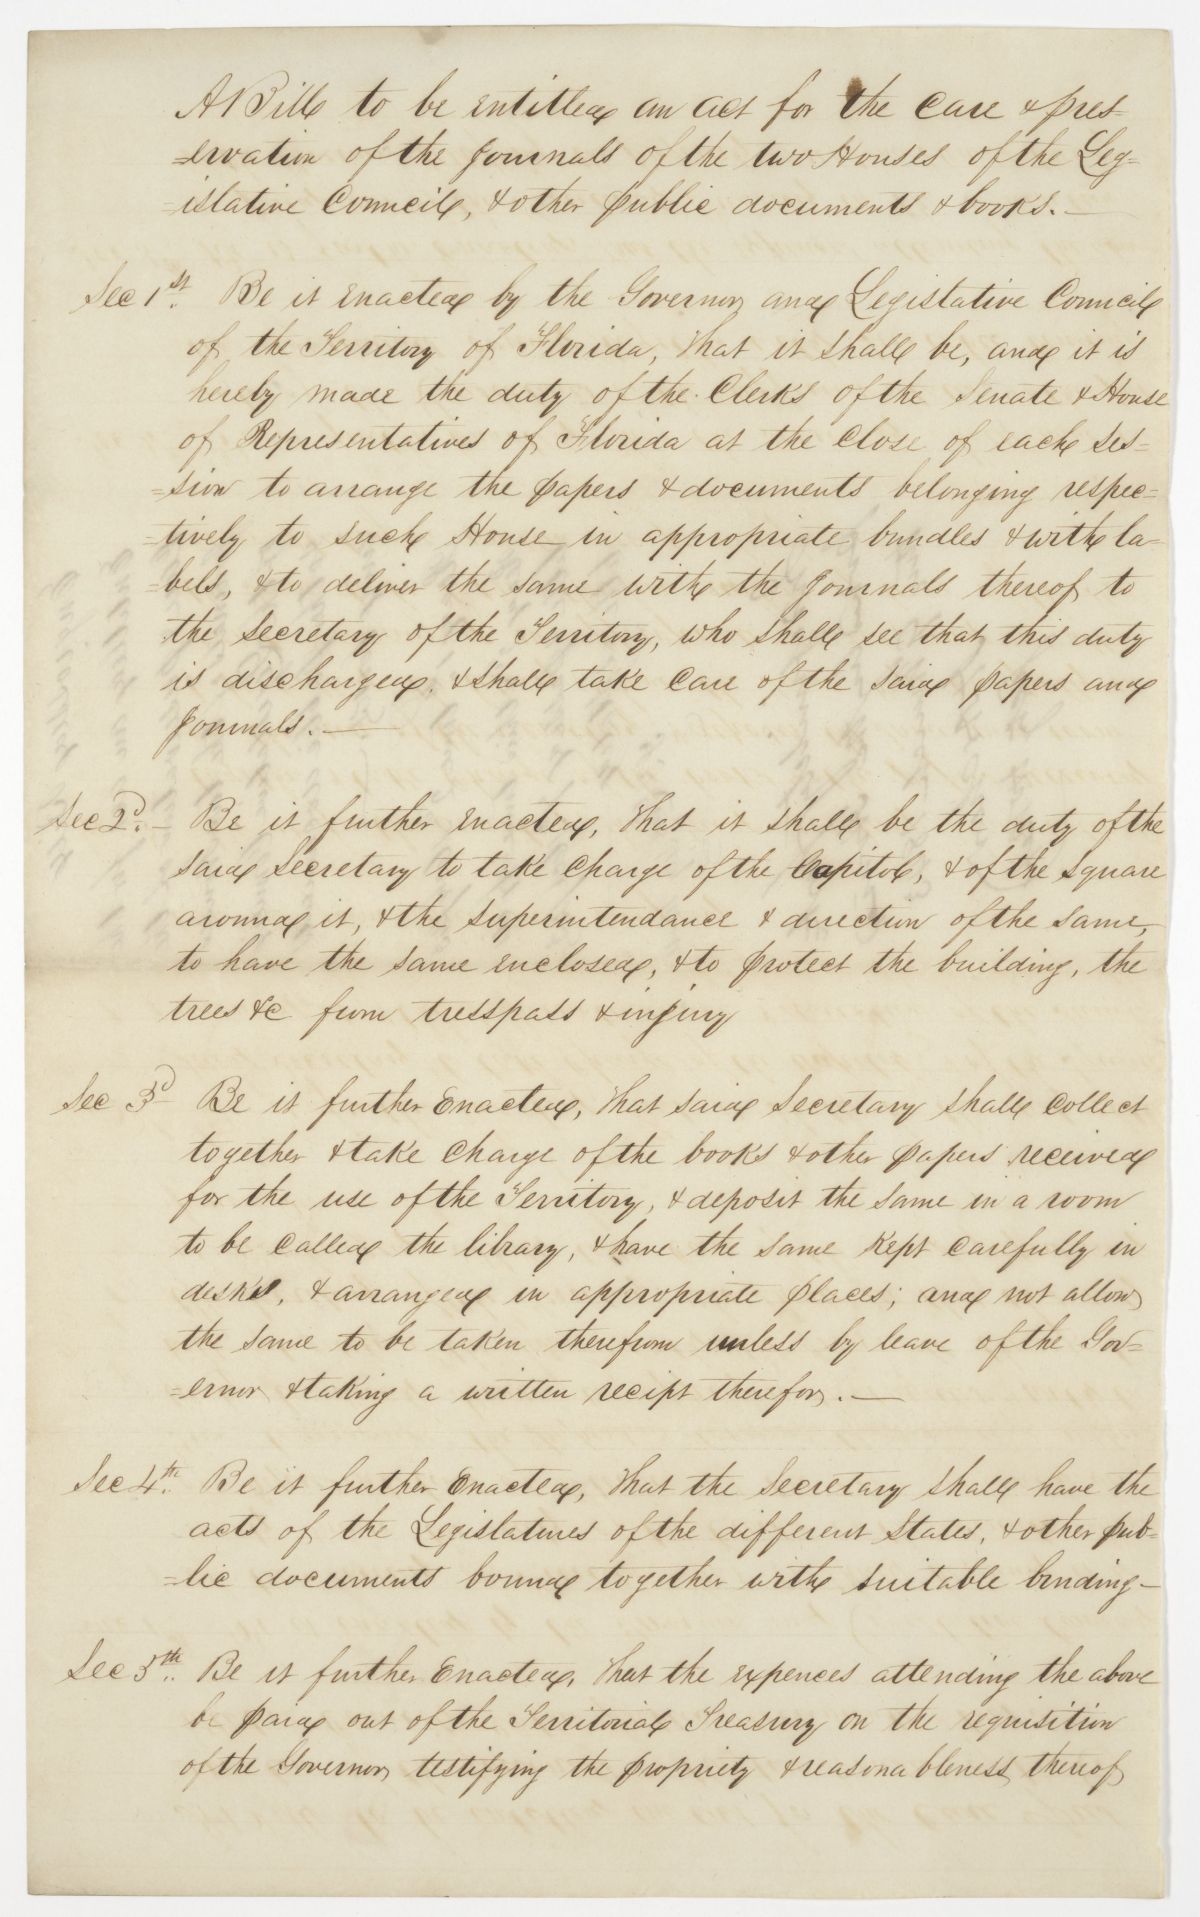 A Bill to be entitled an act for the care & pres-
=ervation of the Journals of the two Houses of the Leg=
=islative Council, & other public documents & books. —
Sec 1st. Be it enacted by the Governor and Legislative Council
of the Territory of Florida, That it shall be, and it is
hereby made the duty of the Clerks of the Senate & House
of Representatives of Florida at the close of each ses=
=sion to arrange the papers & documents belonging respec=
=tively to such House in appropriate bundles & with la-
=bels, & to deliver the same with the Journals thereof to
the Secretary of the Territory, who shall see that this duty
is discharged. & shall take care of the said papers and
Journals. —
Sec 2d. — Be it further enacted, That it shall be the duty of the
said Secretary to take charge of the Capitol, & of the square
around it, & the superintendance & direction of the same,
to have the same enclosed, & to protect the building, the
trees &c from tresspass & injury
Sec 3d Be it further Enacted, That said Secretary shall collect
together & take charge of the books & other papers received
for the use of the Territory, & deposit the same in a room
to be called the library, & have the same kept carefully in
desks, & arranged in appropriate places; and not allow
the same to be taken therefrom unless by leave of the Gov=
=ernor & taking a written recipt therefor. —
Sec 4th. Be it further Enacted, That the Secretary shall have the
acts of the Legislatures of the different States, & other pub=
=lic documents bound together with suitable binding —
Sec 5th. Be it further Enacted, That the expences attending the above
be paid out of the Territorial Treasury on the requisition
of the Governor testifying the propriety & reasonableness thereof